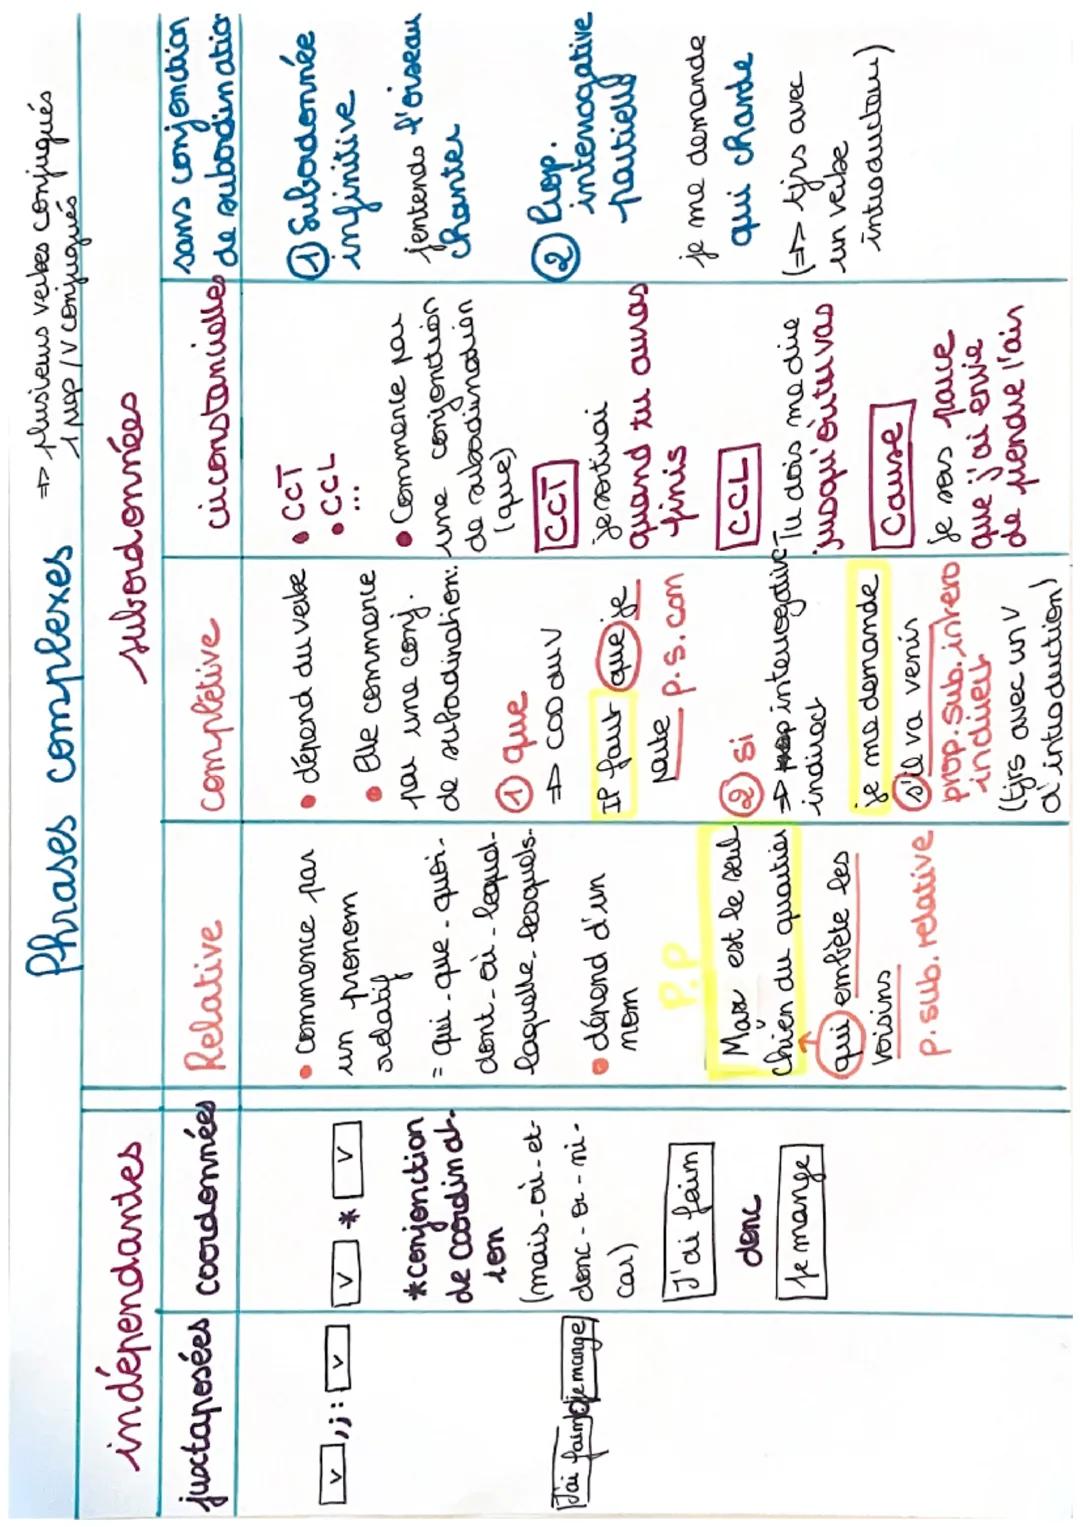 Phrases complexes
=> plusieurs verbes conjugués
1 prop / V conjugués
indépendantes
subordonnées
juxtaposées
v , ; : v
J'ai faim, je mange
coordonnées
v * v
*conjonction
de coordinat-
ion
(mais-où-et-
donc-or-ni-
car)
J'ai faim
donc
je mange
Relative
• commence par
un pronom
relatif
= qui-que-quoi-
dont-où-lequel-
laquelle-lesquels-
• dépend d'un
nom
P.P
Max est le seul
chien du quartier
qui embête les
voisins
p.sub.relative
Complétive
• dépend du verbe
• Elle commence
par une conj.
de subordination:
① que
=> COD du V
Il faut que je
parte p.s.con
② si
=> prop interrogative
indirect
je me demande
s'il va venir
prop.sub.intero
indirect
(tjrs avec un V
d'introduction)
circonstancielles
• CCT
• CCL
...
• Commence par
une conjonction
de subordination
(que)
CCT
je sortirai
quand tu auras
finis
CCL
Tu dois me dire
jusqu'où tu vas
Cause
je sors parce
que j'ai envie
de prendre l'air
sans conjonction
de subordination
① Subordonnée
infinitive
j'entends l'oiseau
chanter
② Prop.
interrogative
partielle
je me demande
qui chante
(=> tjrs avec
un verbe
introducteur)